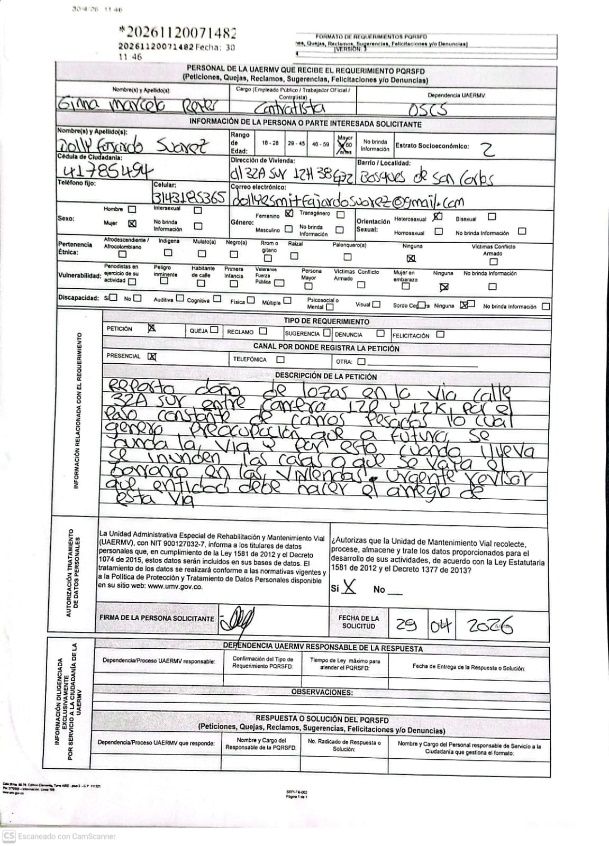 30/4/26 11:46
*20261120071482
20261120071482 Fecha: 30
11 46
FORMATO DE REQUERIMIENTOS PQRSFD
Quejas, Reclamos, Sugerencias, Felicitaciones y/o Denuncias)
VERSIÓN:
PERSONAL DE LA UAERMV QUE RECIBE EL REQUERIMIENTO PQRSFD
(Peticiones, Quejas, Reclamos, Sugerencias, Felicitaciones y/o Denuncias)
Nombre(s) y Apellido(s) Cargo (Empleado Público / Trabajador Oficial / Contratista) Dependencia UAERMV
Ginna Marcela Contratista OSCS
INFORMACIÓN DE LA PERSONA O PARTE INTERESADA SOLICITANTE
Nombre(s) y Apellido(s): Dolly Fajardo Suarez
Rango de Edad: 18 - 28 29 - 45 46 - 59 Mayor 60 X No brinda Información
Estrato Socioeconómico: 2
Cédula de Ciudadanía: 41785494
Dirección de Vivienda: 32A SUR 12H 38
Barrio / Localidad: Bosques de San Carlos
Teléfono fijo: Celular: 3143185365 Correo electrónico: dollyesmitfajardosuarez@gmail.com
Sexo: Hombre Intersexual Mujer X No brinda Información
Género: Femenino X Transgénero Masculino No brinda Información
Orientación Sexual: Heterosexual X Bisexual Homosexual No brinda Información
Pertenencia Étnica: Afrodescendiente / Afrocolombiano Indígena Mulato(s) Negro(s) Rrom o gitano Raizal Palenquero(s) Ninguna X Víctimas Conflicto Armado
Vulnerabilidad: Periodistas en ejercicio de su actividad Peligro inminente Habitante de calle Primera Infancia Veteranos Fuerza Pública Persona Mayor Víctimas Conflicto Armado Mujer en embarazo Ninguna X No brinda información
Discapacidad: Si No Auditiva Cognitiva Física Múltiple Psicosocial o Mental Visual Sordo Ceguera Ninguna X No brinda Información
INFORMACIÓN RELACIONADA CON EL REQUERIMIENTO
TIPO DE REQUERIMIENTO
PETICIÓN X QUEJA RECLAMO SUGERENCIA DENUNCIA FELICITACIÓN
CANAL POR DONDE REGISTRA LA PETICIÓN
PRESENCIAL X TELEFÓNICA OTRA:
DESCRIPCIÓN DE LA PETICIÓN
Reporto daño de lozas en la via calle
32A SUR entre carrera 12B y 12K, por el
paso constante de carros pesados lo cual
genera preocupación que a futuro se
hunda la via y por esto cuando llueva
se inunden las casas o que se vaya el
barranco en las viviendas. Urgente revisar
que entidad debe hacer el arreglo de
esta via
AUTORIZACIÓN TRATAMIENTO DE DATOS PERSONALES
La Unidad Administrativa Especial de Rehabilitación y Mantenimiento Vial
(UAERMV), con NIT 900127032-7, informa a los titulares de datos
personales que, en cumplimiento de la Ley 1581 de 2012 y el Decreto
1074 de 2015, estos datos serán incluidos en sus bases de datos. El
tratamiento de los datos se realizará conforme a las normativas vigentes y
a la Política de Protección y Tratamiento de Datos Personales disponible
en su sitio web: www.umv.gov.co.
¿Autorizas que la Unidad de Mantenimiento Vial recolecte,
procese, almacene y trate los datos proporcionados para el
desarrollo de sus actividades, de acuerdo con la Ley Estatutaria
1581 de 2012 y el Decreto 1377 de 2013?
Si X No __
FIRMA DE LA PERSONA SOLICITANTE FECHA DE LA SOLICITUD 29 04 2026
INFORMACIÓN DILIGENCIADA EXCLUSIVAMENTE POR SERVICIO A LA CIUDADANÍA DE LA UAERMV
DEPENDENCIA UAERMV RESPONSABLE DE LA RESPUESTA
Dependencia/Proceso UAERMV responsable: Confirmación del Tipo de Requerimiento PQRSFD: Tiempo de Ley máximo para atender el PQRSFD: Fecha de Entrega de la Respuesta o Solución:
OBSERVACIONES:
RESPUESTA O SOLUCIÓN DEL PQRSFD
(Peticiones, Quejas, Reclamos, Sugerencias, Felicitaciones y/o Denuncias)
Dependencia/Proceso UAERMV que responde: Nombre y Cargo del Responsable de la PQRSFD: No. Radicado de Respuesta o Solución: Nombre y Cargo del Personal responsable de Servicio a la Ciudadanía que gestiona el formato:
Página 1 de 1
CS Escaneado con CamScanner